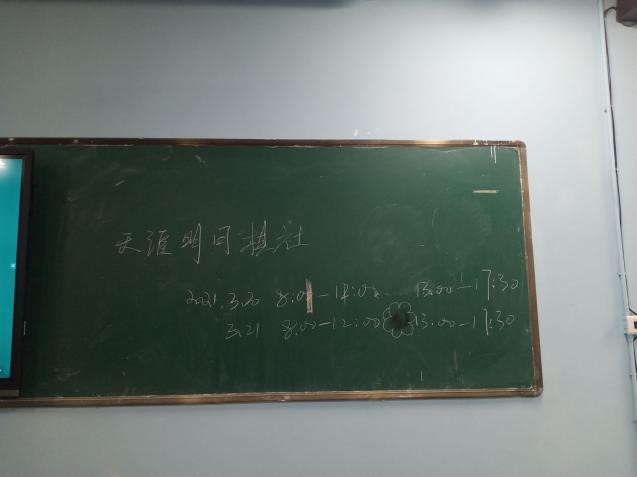 天涯明月棋社
2021.3.20 8:00-12:00 13:00-17:30
3.21 8:00-12:00 13:00-17:30